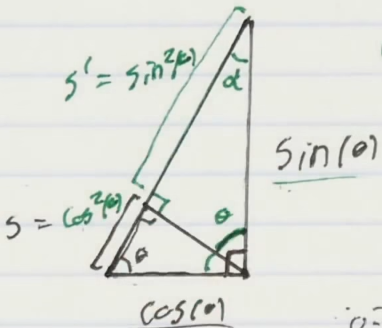 s' = sin²(θ)
α
sin(θ)
s = cos²(θ)
θ
θ
cos(θ)